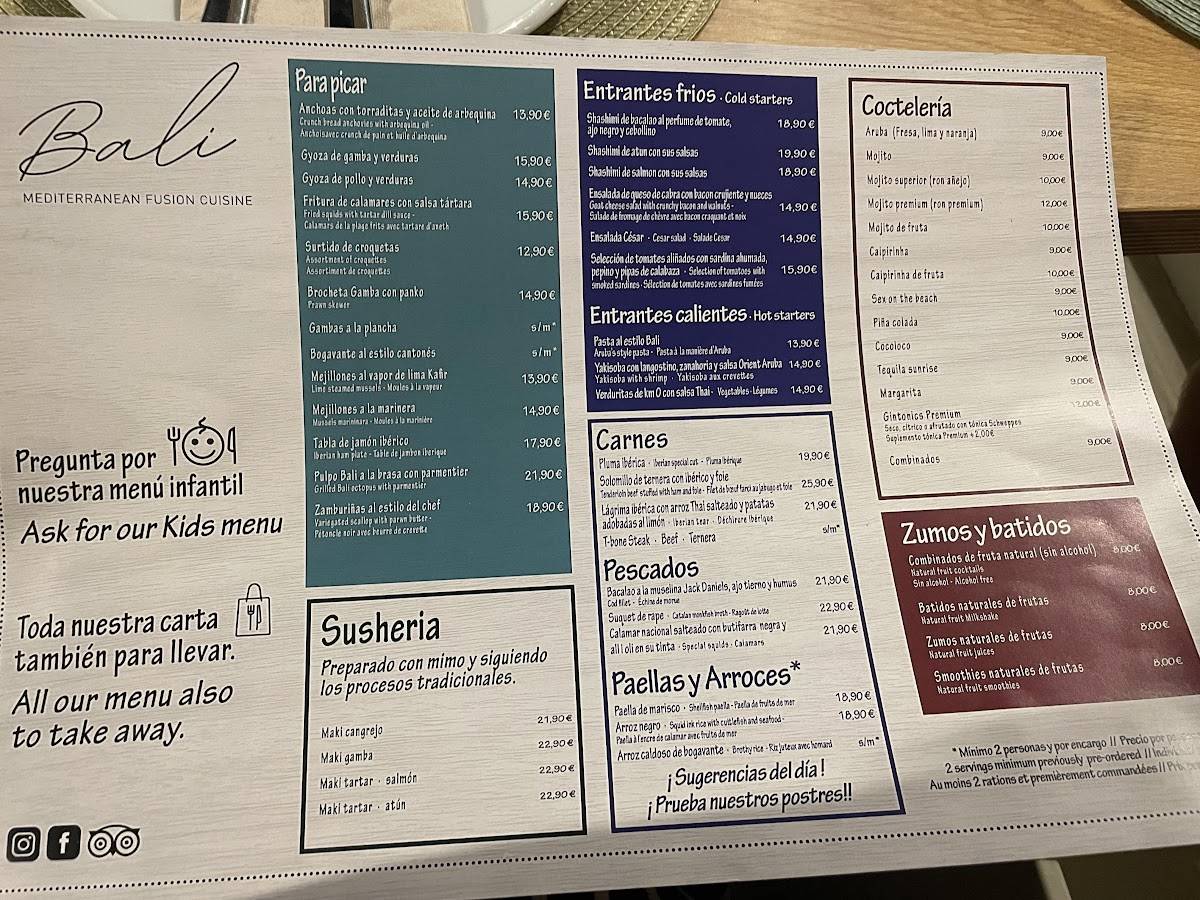 Bali
MEDITERRANEAN FUSION CUISINE
Pregunta por
nuestra menú infantil
Ask for our Kids menu
Toda nuestra carta
también para llevar.
All our menu also
to take away.
Para picar
Anchoas con torraditas y aceite de arbequina 13,90 €
Crunch bread anchovies with arbequina oil -
Anchois avec crunch de pain et huile d'arbequina
Gyoza de gamba y verduras 15,90 €
Gyoza de pollo y verduras 14,90 €
Fritura de calamares con salsa tártara
Fried squids with tartar dill sauce - 15,90 €
Calamars de la plage frits avec tartare d'aneth
Surtido de croquetas 12,90 €
Assortment of croquettes
Assortiment de croquettes
Brocheta Gamba con panko 14,90 €
Prawn skewer
Gambas a la plancha s/m*
Bogavante al estilo cantonés s/m*
Mejillones al vapor de lima Kafir 13,90 €
Lime steamed mussels - Moules à la vapeur
Mejillones a la marinera 14,90 €
Mussels marininara - Moules à la marinière
Tabla de jamón ibérico 17,90 €
Iberian ham plate - Table de jambon iberique
Pulpo Bali a la brasa con parmentier 21,90 €
Grilled Bali octopus with parmentier
Zamburiñas al estilo del chef 18,90 €
Variegated scallop with parwn butter -
Pétoncle noir avec beurre de crevette
Susheria
Preparado con mimo y siguiendo
los procesos tradicionales.
Maki cangrejo 21,90 €
Maki gamba 22,90 €
Maki tartar · salmón 22,90 €
Maki tartar · atún 22,90 €
Entrantes frios · Cold starters
Shashimi de bacalao al perfume de tomate, 18,90 €
ajo negro y cebollino
Shashimi de atun con sus salsas 19,90 €
Shashimi de salmon con sus salsas 18,90 €
Ensalada de queso de cabra con bacon crujiente y nueces
Goat cheese salad with crunchy bacon and walnuts - 14,90 €
Salade de fromage de chèvre avec bacon craquant et noix
Ensalada César · Cesar salad · Salade Cesar 14,90€
Selección de tomates aliñados con sardina ahumada,
pepino y pipas de calabaza · Selection of tomatoes with 15,90€
smoked sardines · Sélection de tomates avec sardines fumées
Entrantes calientes · Hot starters
Pasta al estilo Bali 13,90 €
Aruba's style pasta - Pasta à la manière d'Aruba
Yakisoba con langostino, zanahoria y salsa Orient Aruba 14,90 €
Yakisoba with shrimp · Yakisoba aux crevettes
Verduritas de km 0 con salsa Thai · Vegetables - Légumes 14,90 €
Carnes
Pluma ibérica · Iberian special cut · Pluma ibérique 19,90 €
Solomillo de ternera con ibérico y foie
Tenderloin beef stuffed with ham and foie - Filet de bœuf farci au jabugo et foie 25,90 €
Lágrima ibérica con arroz Thai salteado y patatas 21,90 €
adobadas al limón · Iberian tear · Déchirure ibérique
T-bone Steak · Beef · Ternera s/m*
Pescados
Bacalao a la muselina Jack Daniels, ajo tierno y humus 21,90 €
Cod filet - Échine de morue
Suquet de rape · Catalan monkfish broth - Ragoût de lotte 22,90 €
Calamar nacional salteado con butifarra negra y 21,90 €
all i oli en su tinta · Special squids · Calamars
Paellas y Arroces*
Paella de marisco · Shellfish paella - Paella de fruits de mer 18,90 €
Arroz negro · Squid ink rice with cuttlefish and seafood - 18,90 €
Paella à l'encre de calamar avec fruits de mer
Arroz caldoso de bogavante · Brothy rice - Riz juteux avec homard s/m*
¡ Sugerencias del día !
¡ Prueba nuestros postres!!
Coctelería
Aruba (Fresa, lima y naranja) 9,00€
Mojito 9,00€
Mojito superior (ron añejo) 10,00€
Mojito premium (ron premium) 12,00€
Mojito de fruta 10,00€
Caipirinha 9,00€
Caipirinha de fruta 10,00€
Sex on the beach 9,00€
Piña colada 10,00€
Cocoloco 9,00€
Tequila sunrise 9,00€
Margarita 9,00€
Gintonics Premium 12,00€
Seco, cítrico o afrutado con tónica Schweppes
Suplemento tónica Premium + 2,00€
Combinados 9,00€
Zumos y batidos
Combinados de fruta natural (sin alcohol) 8,00€
Natural fruit cocktails
Sin alcohol - Alcohol free
Batidos naturales de frutas 8,00€
Natural fruit Milkshake
Zumos naturales de frutas 8,00€
Natural fruit juices
Smoothies naturales de frutas 8,00€
Natural fruit smoothies
* Mínimo 2 personas y por encargo // Precio por
2 servings minimum previously pre-ordered //
Au moins 2 rations et premièrement commandées //